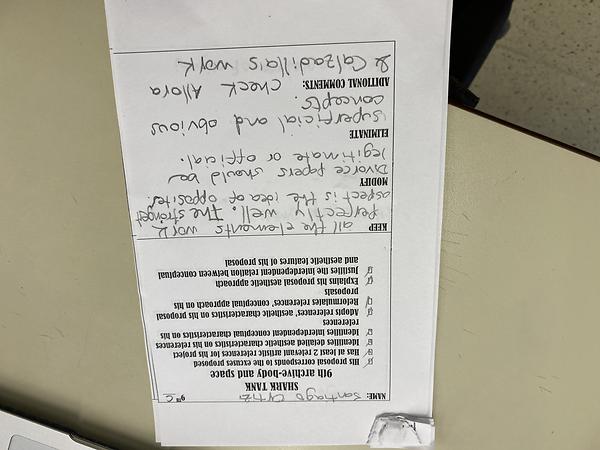 NAME: Santiago Ortiz 9th C
SHARK TANK
9th archive-body and space
His proposal corresponds to the excuses proposed
Has at least 2 relevant artistic references for his project
Identifies detailed aesthetic characteristics on his references
Identifies interdependent conceptual characteristics on his
references
Adopts references, aesthetic characteristics on his proposal
Reformulates references, conceptual approach on his
proposals
Explains his proposal aesthetic approach
Justifies the interdependent relation between conceptual
and aesthetic features of his proposal
KEEP all the elements work
perfectly well. The strongest
aspect is the idea of opposites.
MODIFY
Divorce papers should be
legitimate or official.
ELIMINATE
superficial and obvious
concepts.
ADITIONAL COMMENTS: check Allora
& Calzadilla's work